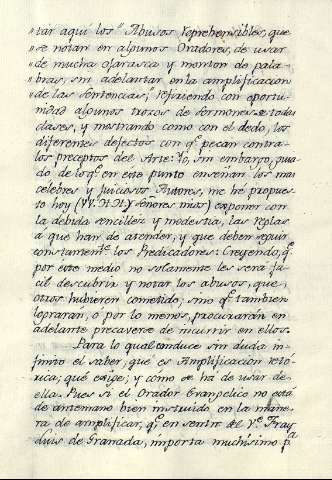 tar aquí los "Abusos reprehensibles, que
se notan en algunos Oradores, de usar
de mucha ojarasca y monton de pala-
bras, sin adelantar en la amplificacion
de las sentencias," refiriendo con oportu-
nidad algunos trozos de Sermones de todas
clases, y mostrando como con el dedo, los
diferentes defectos con qe. pecan contra
los preceptos del Arte: Yo, sin embargo, guia-
do de lo qe. en este punto enseñan los mas
celebres y juiciosos Autores, me he propues-
to hoy (VV. H.H. y Señores mios) exponer con
la debida sencillez y modestia, las reglas
á que han de atender, y que deben seguir
constantemte. los Predicadores: Creyendo, qe.
por este medio no solamente les será fa-
cil descubrir y notar los abusos, que
otros hubieren cometido, sino qe. tambien
lograrán, o por lo menos, procurarán en
adelante precaverse de incurrir en ellos.
Para lo qual conduce sin duda in-
finito el saber, qué es Amplificacion retó-
rica; qué exige; y cómo se há de usar de
ella. Pues si el Orador Evangelico no está
de antemano bien instruido en la mane-
ra de amplificar, qe. en sentir del Ve. Fray
Luis de Granada, importa muchisimo pa